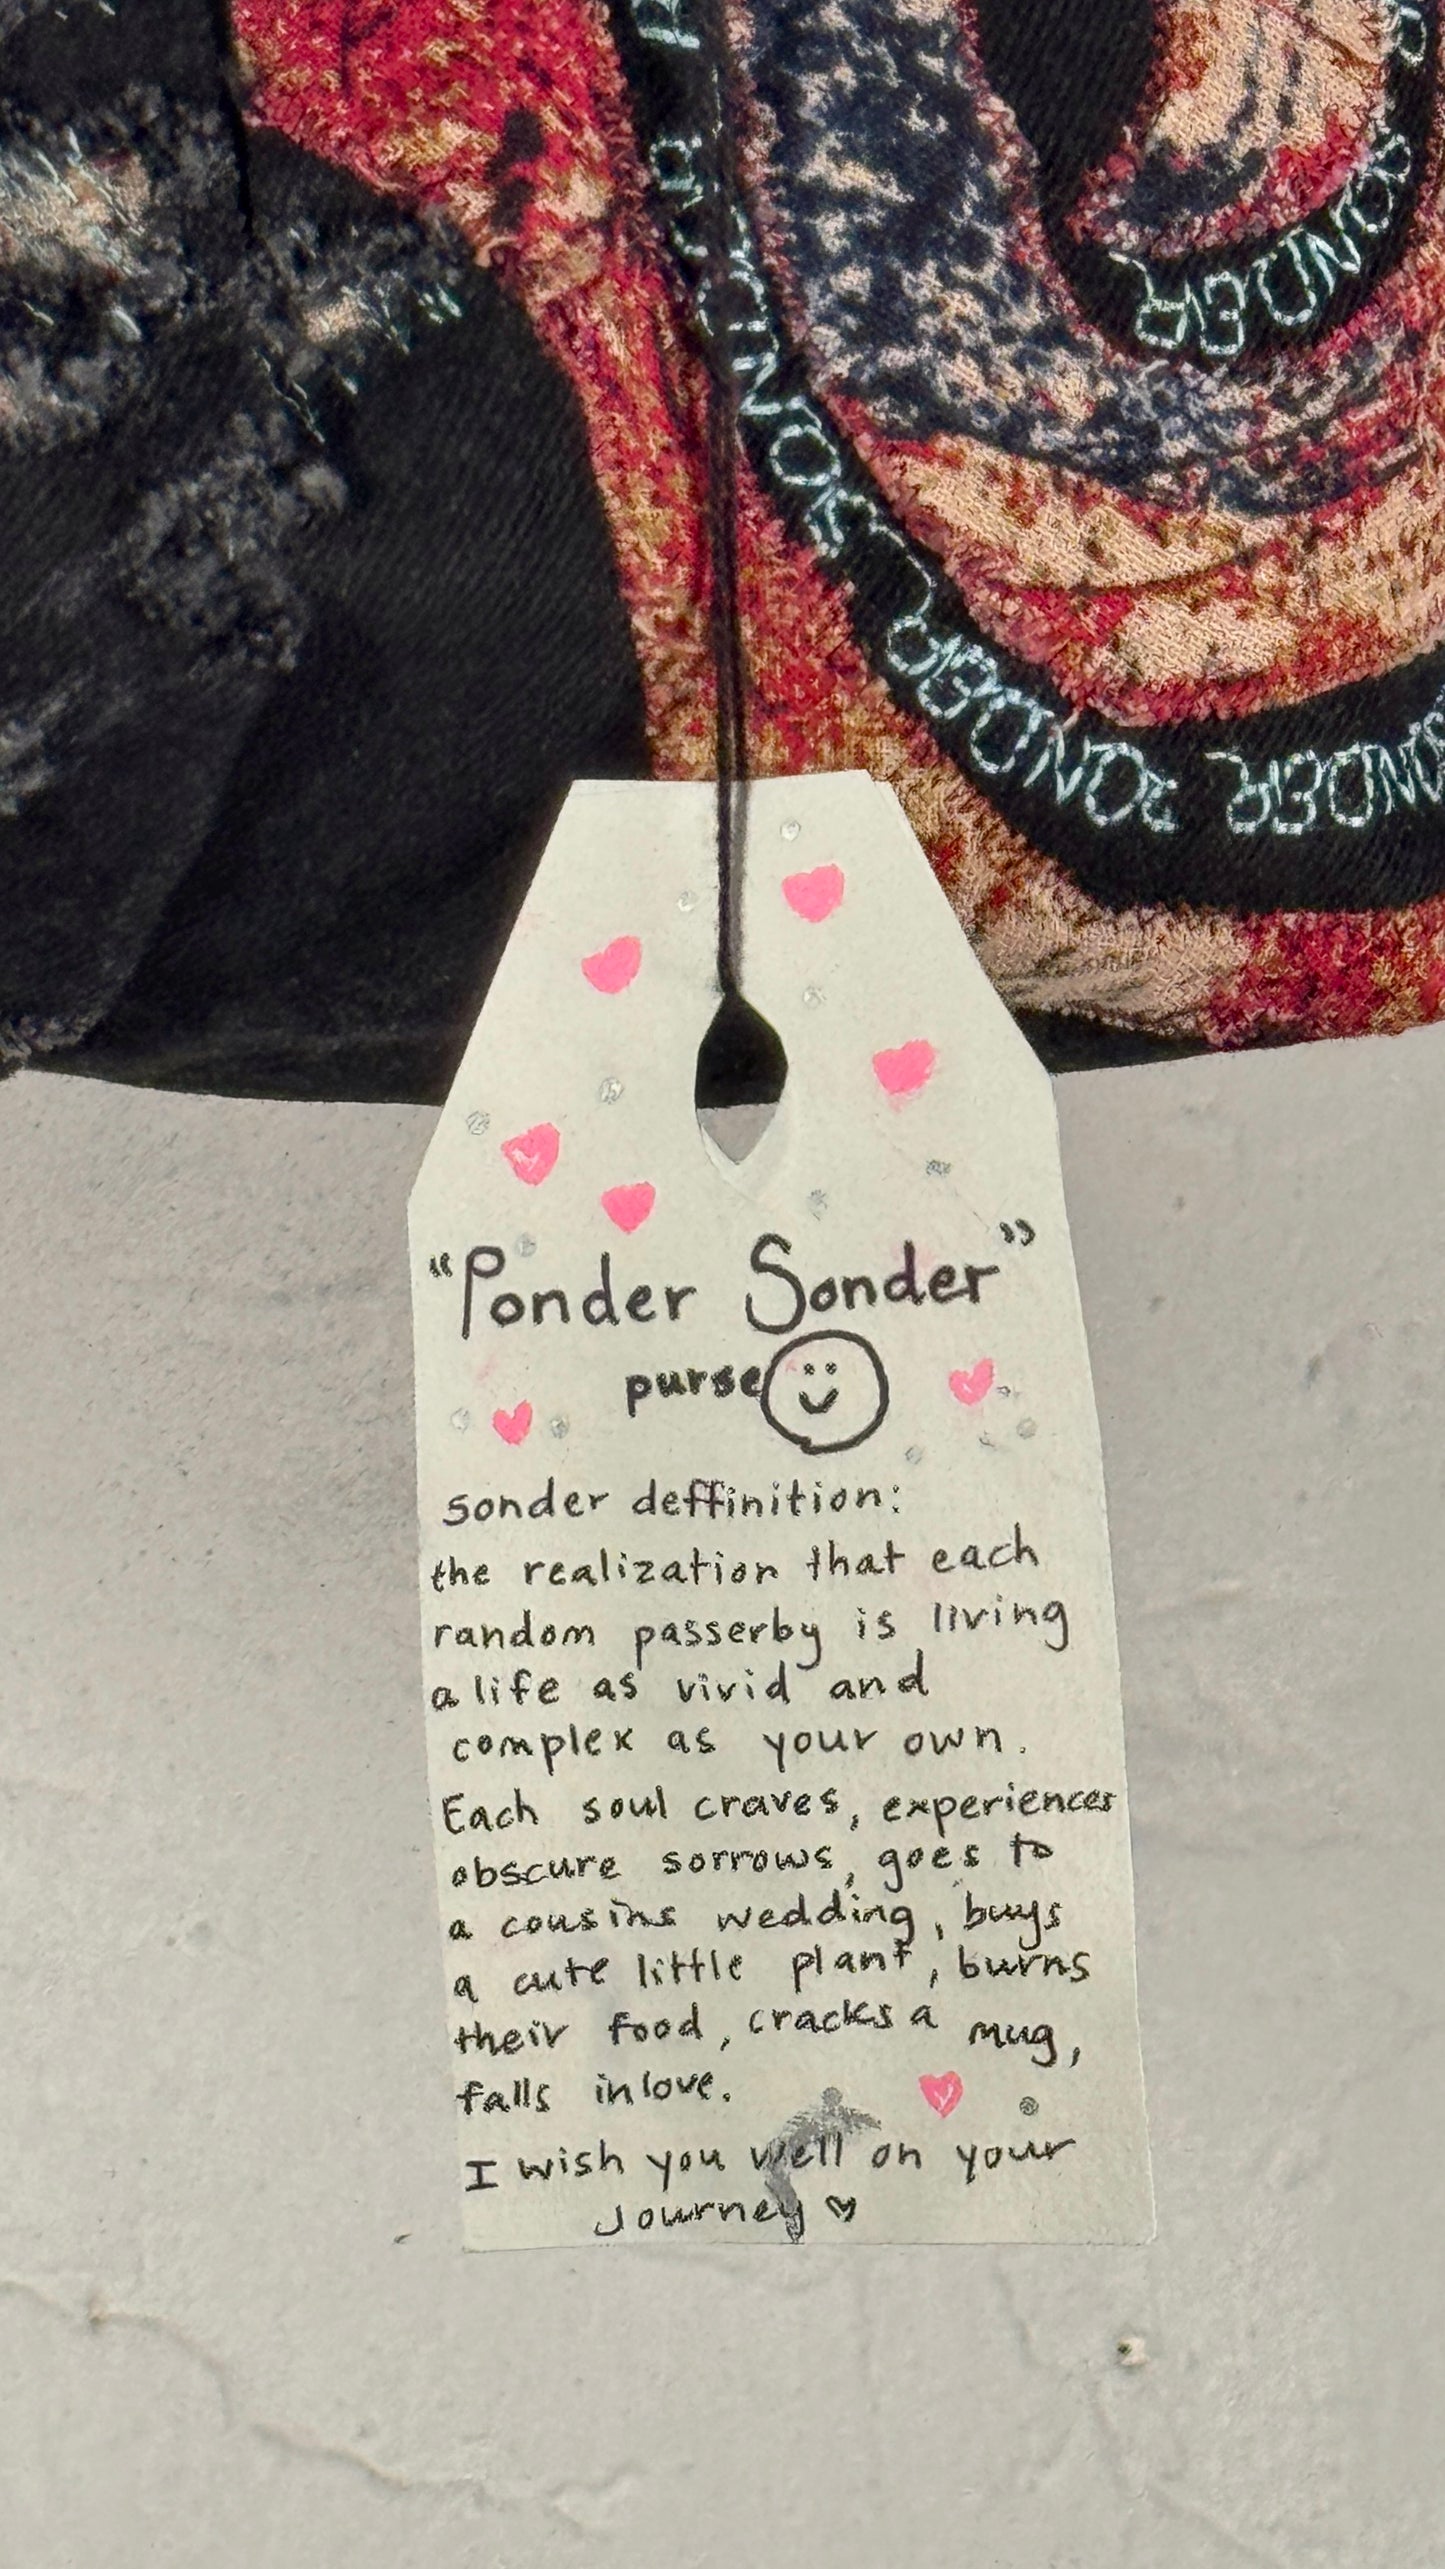 PONDER
SONDER
PONDER
PONDER SONDER
"Ponder Sonder"
purse
sonder deffinition:
the realization that each
random passerby is living
a life as vivid and
complex as your own.
Each soul craves, experiences
obscure sorrows, goes to
a cousins wedding, buys
a cute little plant, burns
their food, cracks a mug,
falls in love.
I wish you well on your
Journey ♡